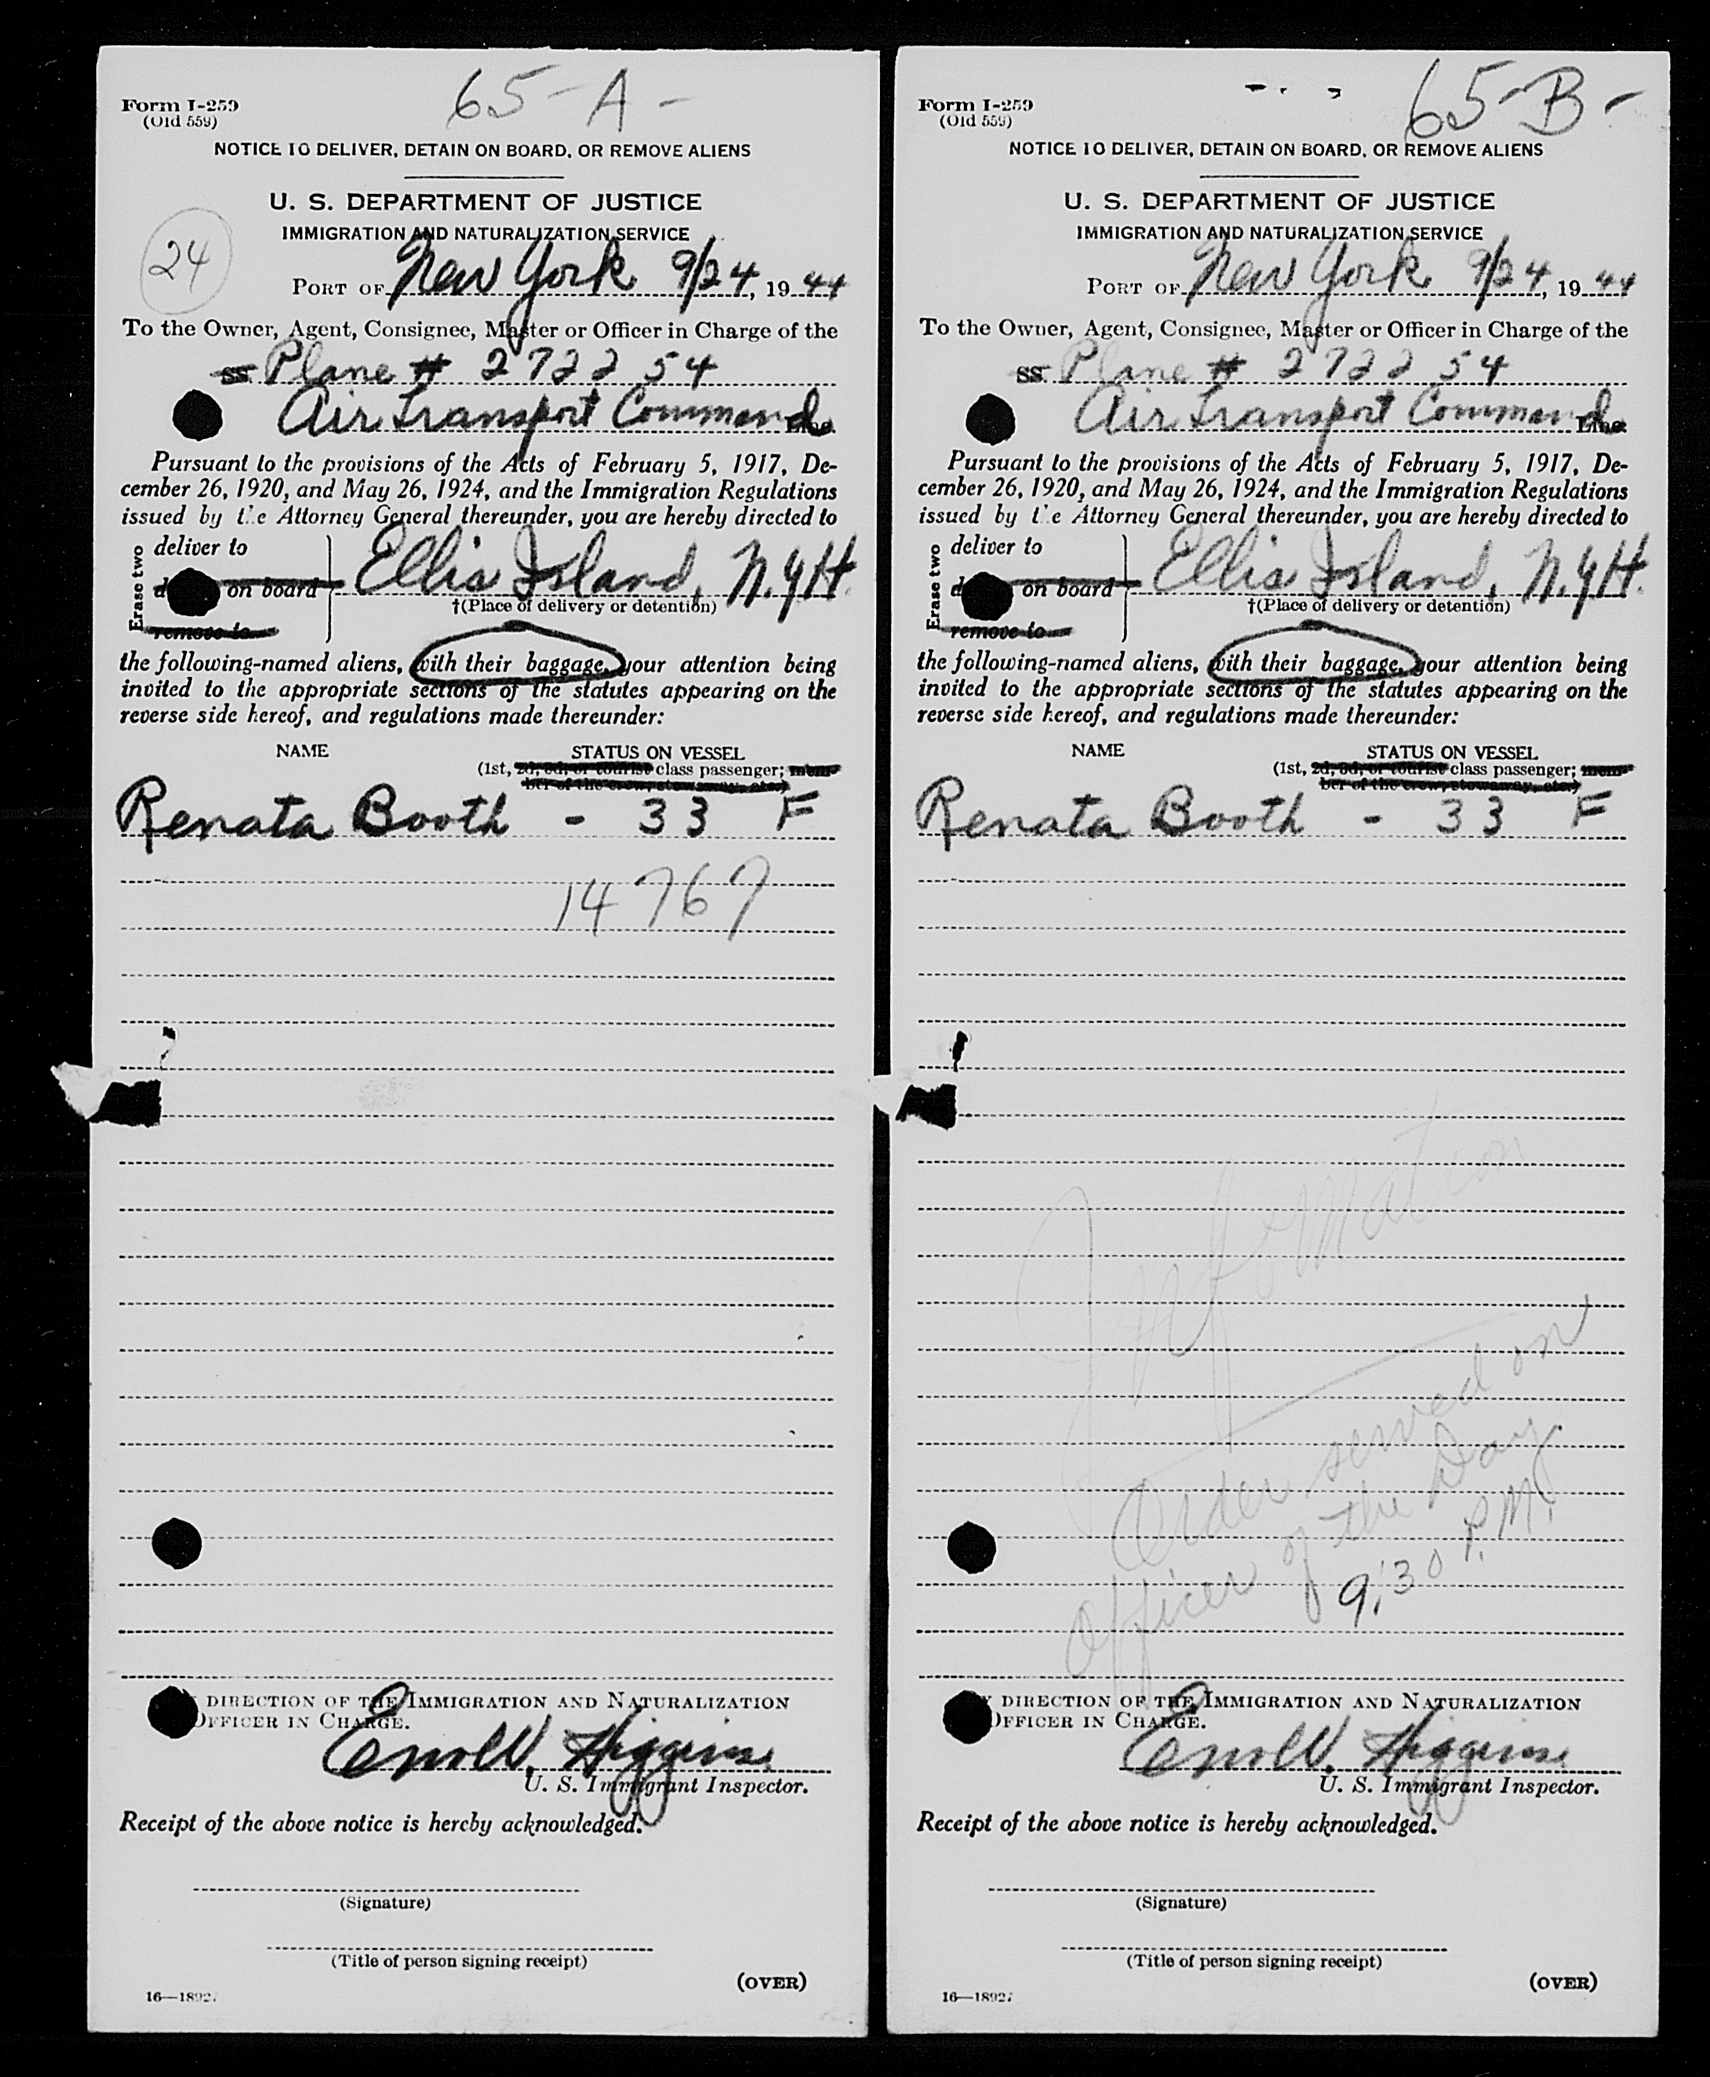 65-A-
Form I-259
(Old 559)
NOTICE TO DELIVER, DETAIN ON BOARD, OR REMOVE ALIENS
U. S. DEPARTMENT OF JUSTICE
IMMIGRATION AND NATURALIZATION SERVICE
24
PORT OF New York 9/24, 1944
To the Owner, Agent, Consignee, Master or Officer in Charge of the
SS Plane # 272254
Air Transport Command Line
Pursuant to the provisions of the Acts of February 5, 1917, De-
cember 26, 1920, and May 26, 1924, and the Immigration Regulations
issued by the Attorney General thereunder, you are hereby directed to
Erase two
deliver to
on board
remove to
Ellis Island, N.Y.H.
†(Place of delivery or detention)
the following-named aliens, with their baggage, your attention being
invited to the appropriate sections of the statutes appearing on the
reverse side hereof, and regulations made thereunder:
NAME STATUS ON VESSEL
(1st, 2d, 3d, or tourist class passenger; mem-
ber of the crew, stowaway, etc.)
Renata Booth - 33 F
14767
DIRECTION OF THE IMMIGRATION AND NATURALIZATION
OFFICER IN CHARGE.
Higgins
U. S. Immigrant Inspector.
Receipt of the above notice is hereby acknowledged.
(Signature)
(Title of person signing receipt)
(OVER)
16—18927
65-B-
Form I-259
(Old 559)
NOTICE TO DELIVER, DETAIN ON BOARD, OR REMOVE ALIENS
U. S. DEPARTMENT OF JUSTICE
IMMIGRATION AND NATURALIZATION SERVICE
PORT OF New York 9/24, 1944
To the Owner, Agent, Consignee, Master or Officer in Charge of the
SS Plane # 272254
Air Transport Command Line
Pursuant to the provisions of the Acts of February 5, 1917, De-
cember 26, 1920, and May 26, 1924, and the Immigration Regulations
issued by the Attorney General thereunder, you are hereby directed to
Erase two
deliver to
on board
remove to
Ellis Island, N.Y.H.
†(Place of delivery or detention)
the following-named aliens, with their baggage, your attention being
invited to the appropriate sections of the statutes appearing on the
reverse side hereof, and regulations made thereunder:
NAME STATUS ON VESSEL
(1st, 2d, 3d, or tourist class passenger; mem-
ber of the crew, stowaway, etc.)
Renata Booth - 33 F
Information
Order served on
Officer of the Day
9:30 P.M.
DIRECTION OF THE IMMIGRATION AND NATURALIZATION
OFFICER IN CHARGE.
Higgins
U. S. Immigrant Inspector.
Receipt of the above notice is hereby acknowledged.
(Signature)
(Title of person signing receipt)
(OVER)
16—18927